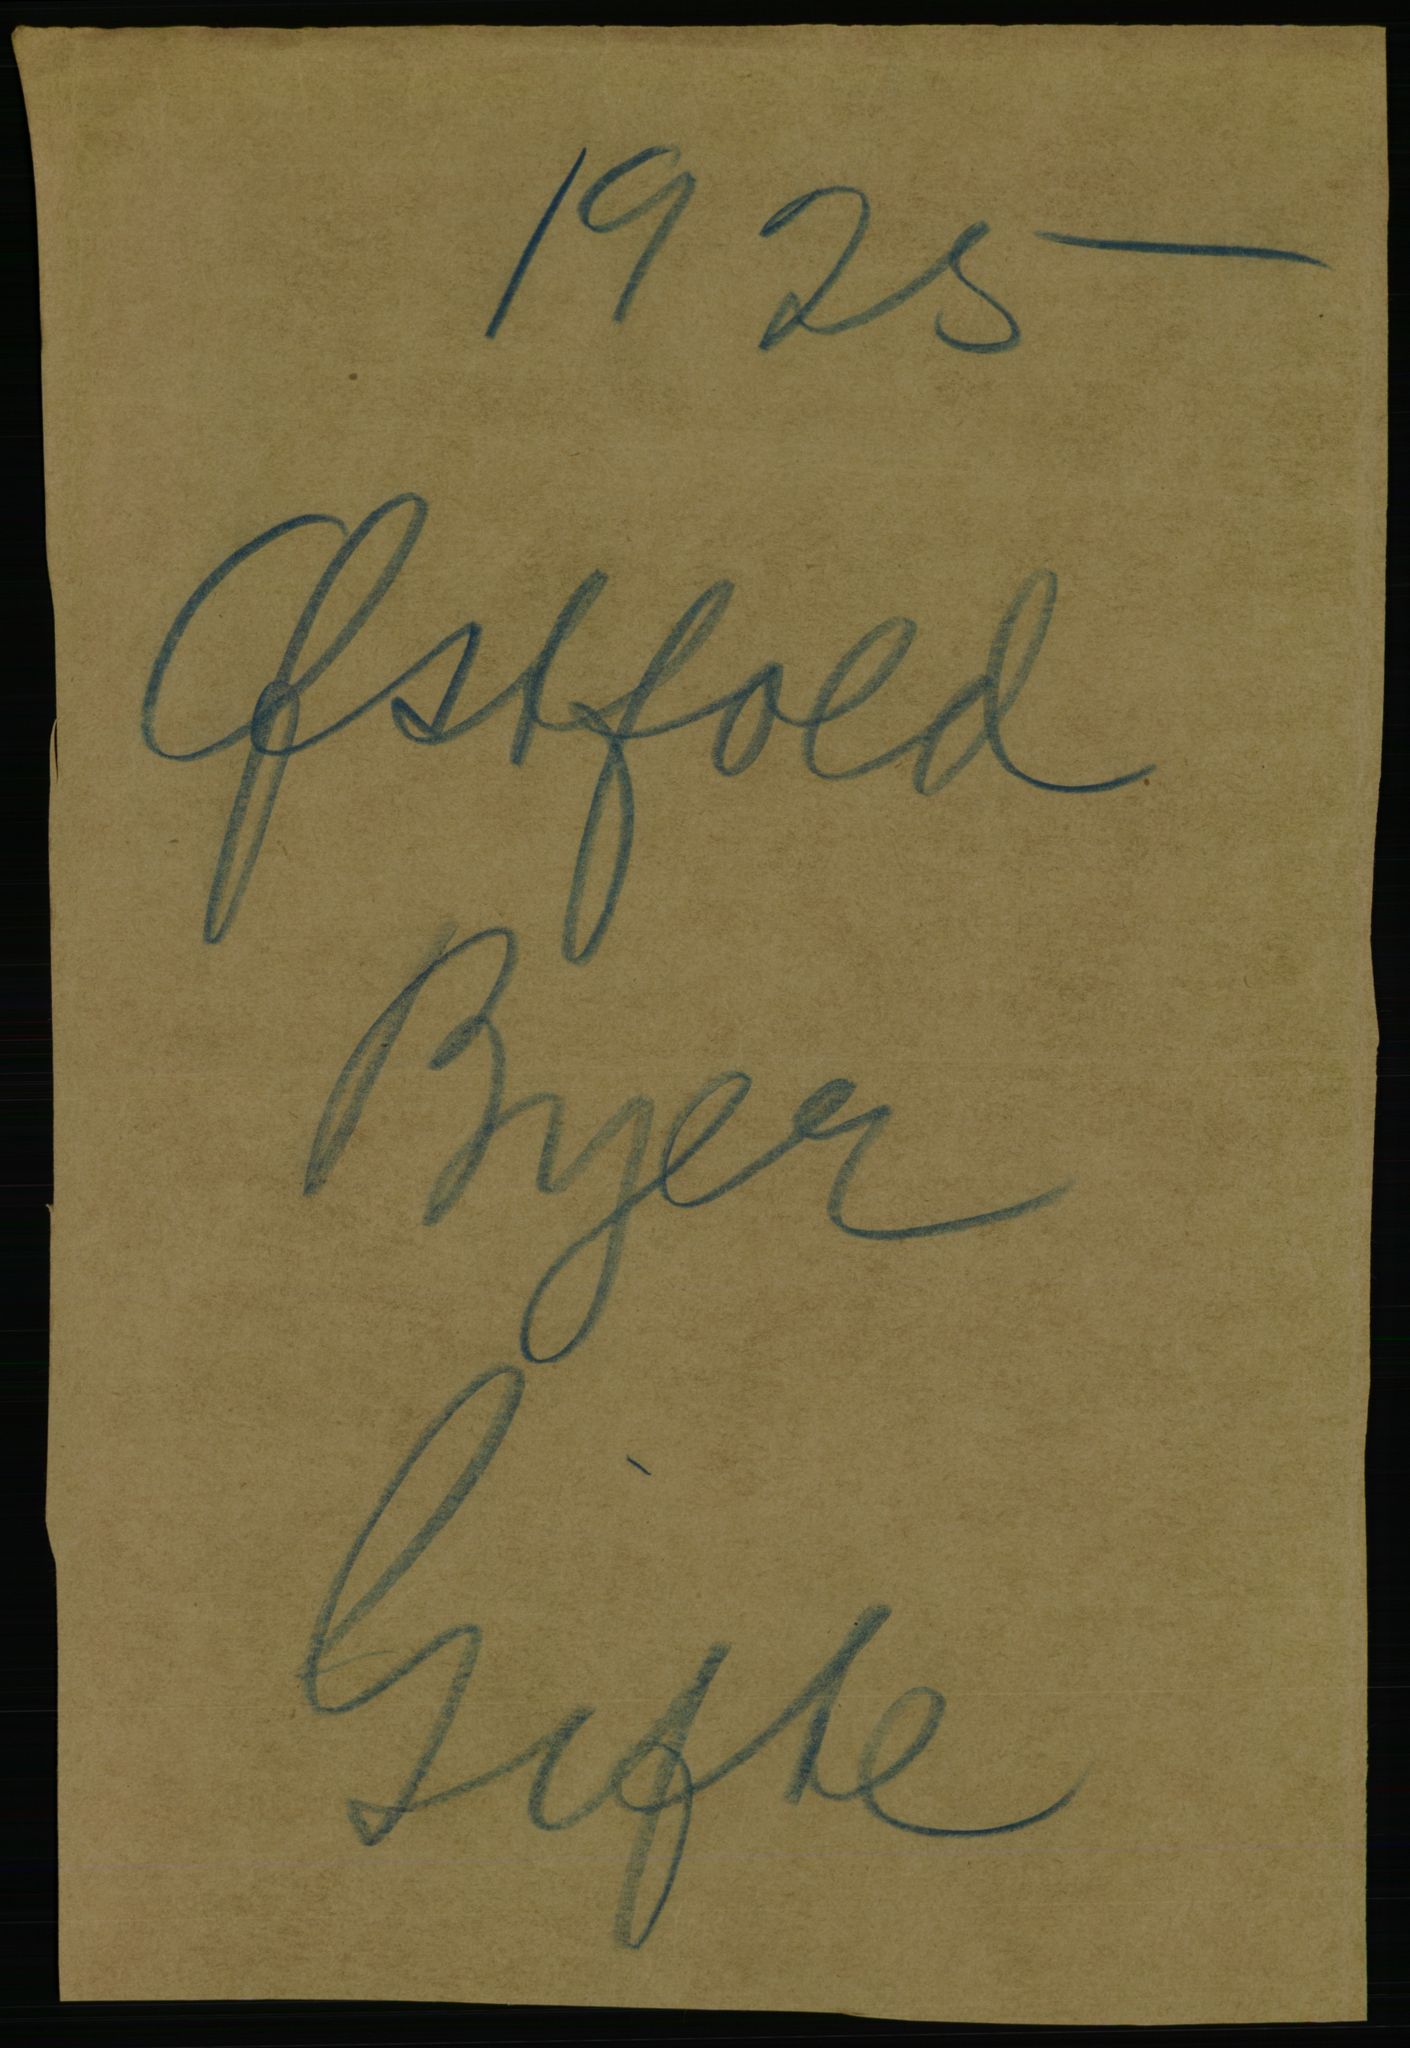 1925
Østfold
Byer
Gifte